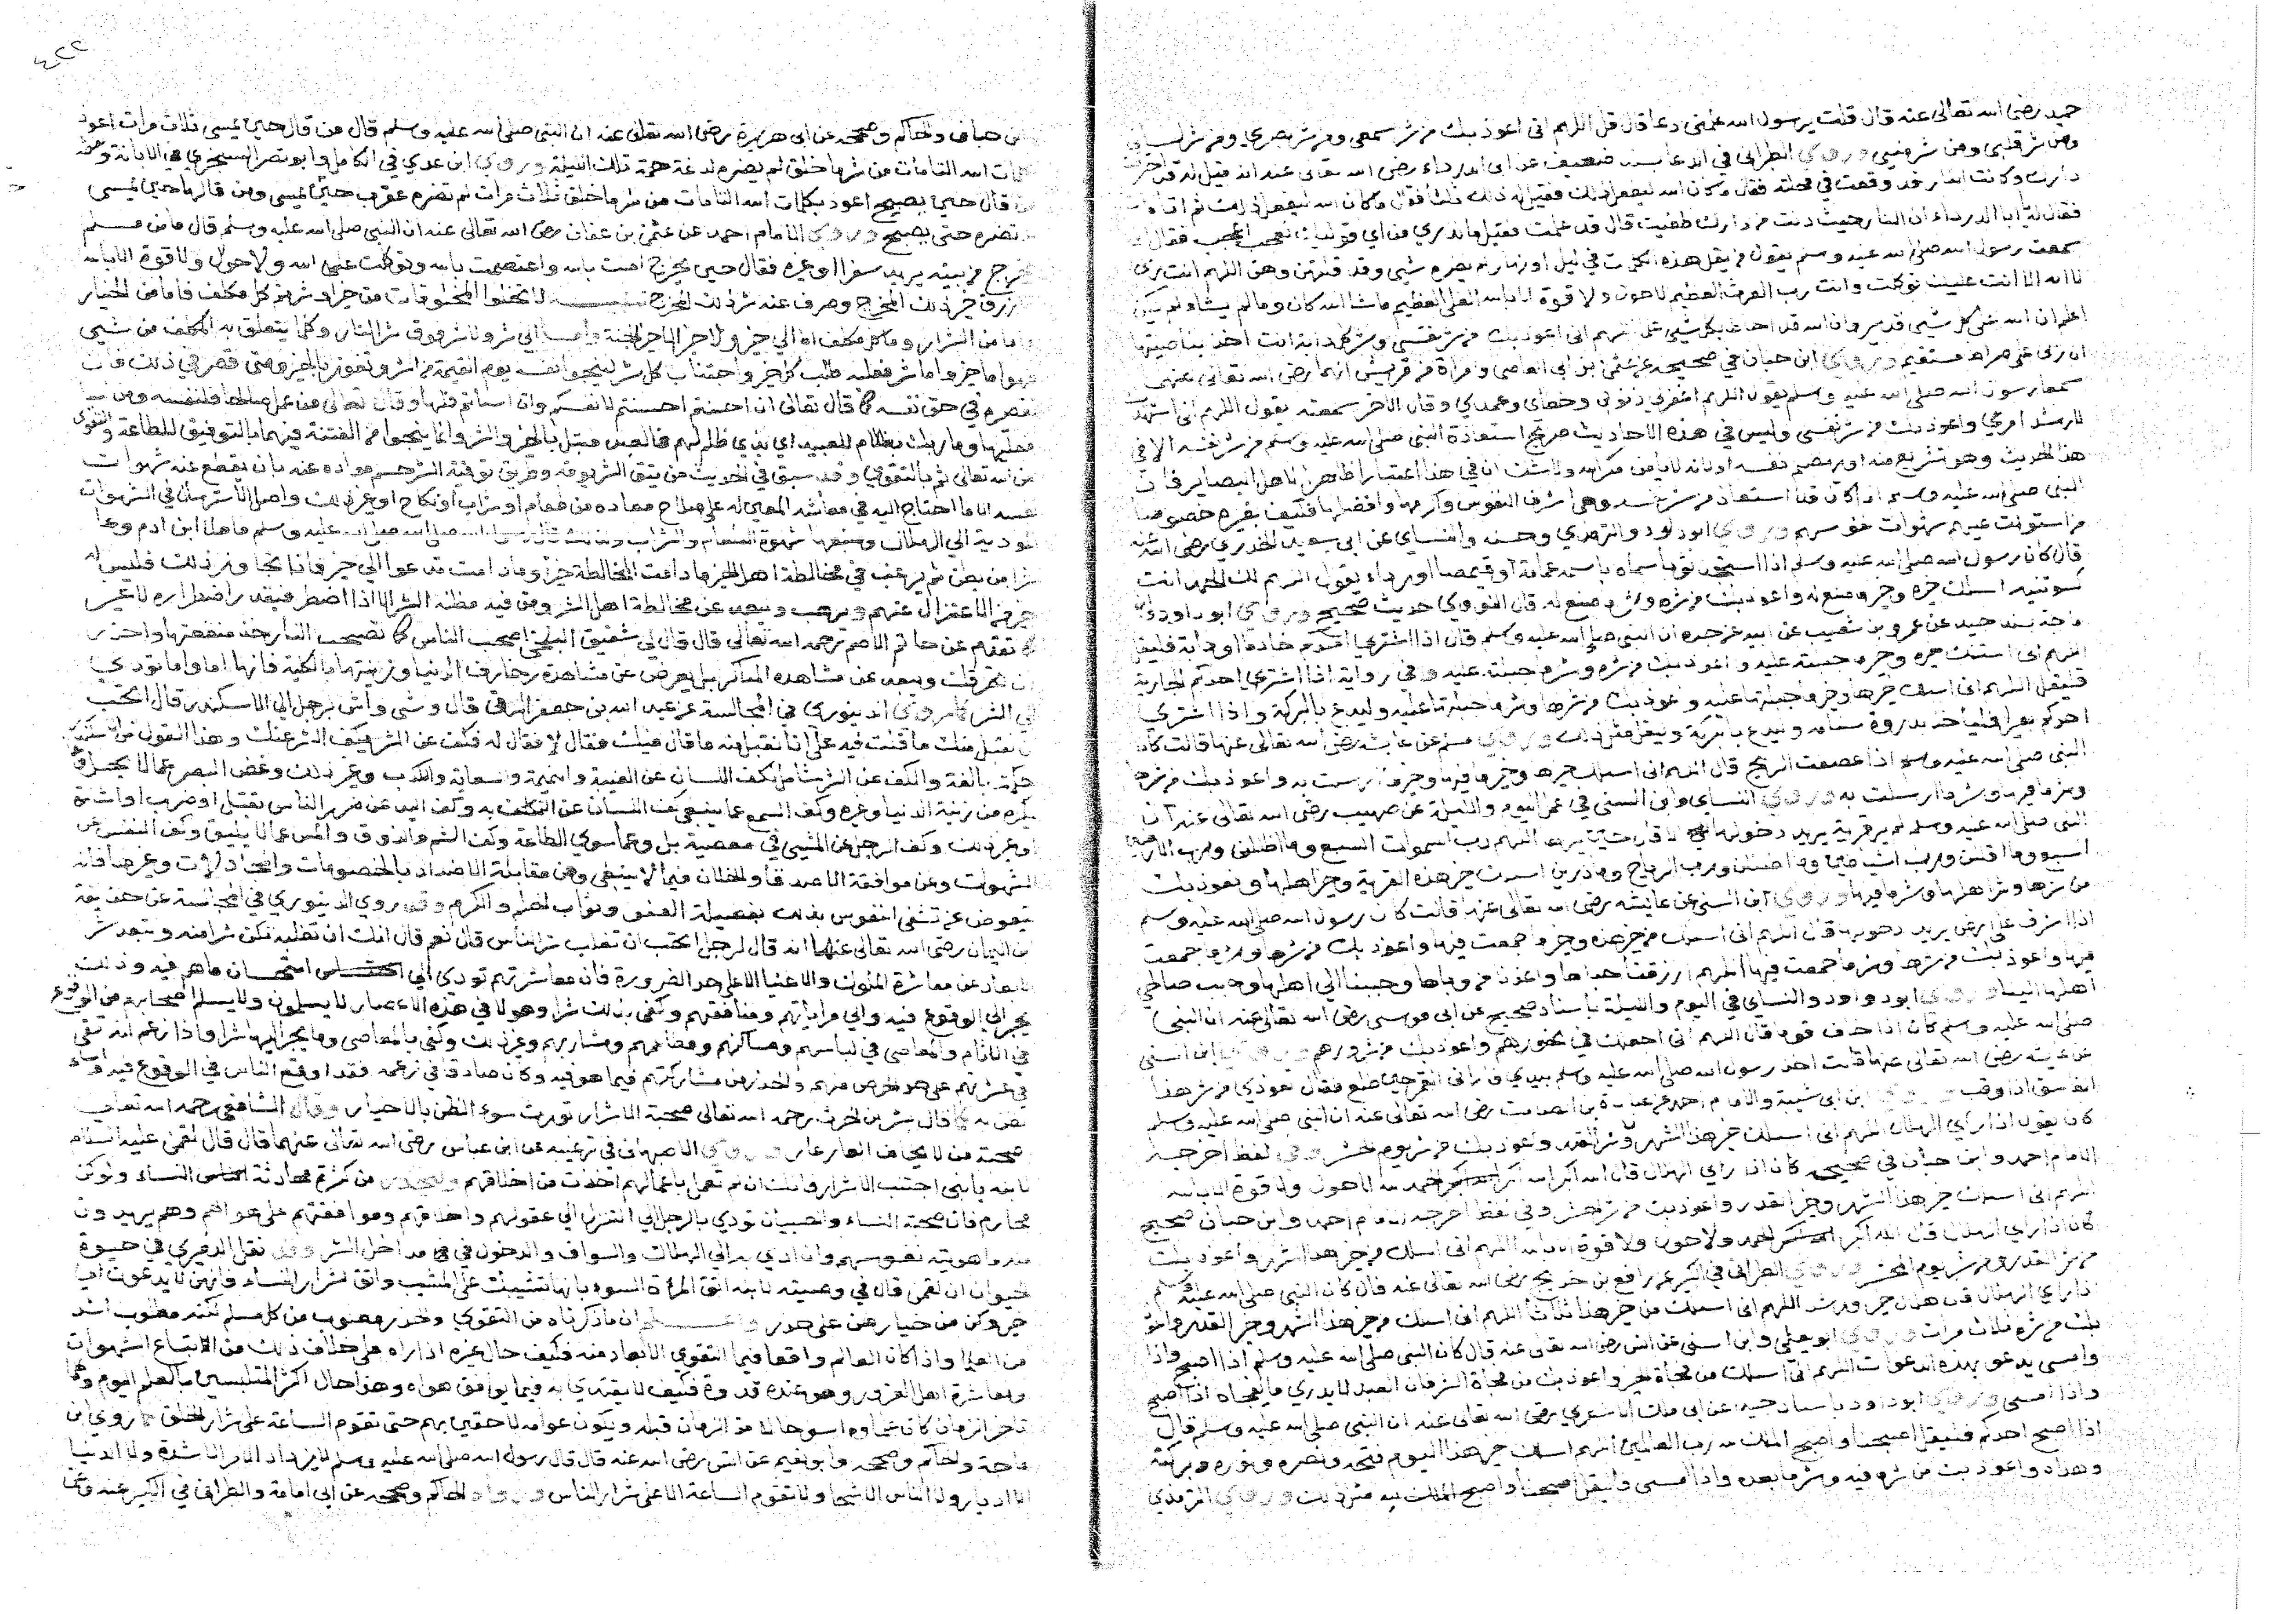 حميد رضى الله تعالى عنه قال قلت يرسول الله علمنى دعا قال قل اللهم انى اعوذ بك من شر سمعى ومن شر بصري ومن شر لساني
ومن شر قلبي ومن شر منيي وروي الطبرانى في الدعا بسند ضعيف عن ابى الدرداء رضى الله تعالى عنه انه قيل له قد احترقت
دارك وكانت النار قد وقعت في محلته فقال ما كان الله ليفعل ذلك فقيل له ذلك ثلثا فقال ما كان الله ليفعل ذلك ثم اتاه
فقال له يا ابا الدرداء ان النار حيث دنت من دارك طفيت قال قد علمت فقيل ما ندري من اي قوليك نعجب اعجب فقال
سمعت رسول الله صلى الله عليه وسلم يقول من يقل هذه الكلمات في ليل او نهار لم يضره شيى وقد قلتهن وهن اللهم انت ربي
لا اله الا انت عليك توكلت وانت رب العرش العظيم لا حول ولا قوة الا بالله العلي العظيم ما شا الله كان وما لم يشاء لم يكن
اعلم ان الله على كل شيى قدير وان الله قد احاط بكل شيى علما اللهم انى اعوذ بك من شر نفسى وشر كل دابة انت اخذ بناصيتها
ان ربى على صراط مستقيم وروي ابن حبان في صحيحه عن عثمن بن ابى العاصى وامراة من قريش انهما رضى الله تعالى عنهما
سمعا رسول الله صلى الله عليه وسلم يقول اللهم اغفر لي ذنوبى وخطاى وعمدي وقال الاخر سمعته يقول اللهم انى استهديك
لارشد امري واعوذ بك من شر نفسى وليس في هذه الاحاديث صريح استعاذة النبى صلى الله عليه وسلم من شر نفسه الا في
هذا الحديث
النبى صلى الله عليه وسلم اذا كان قد استعاذ من شر نفسه وهى اشرف النفوس واكرمها وافضلها فكيف بغيره خصوصا
من استولت عليهم شهوات نفوسهم وروي ابو داود والترمذي وحسنه والنساى عن ابى سعيد الخدري رضى الله عنه
قال كان رسول الله صلى الله عليه وسلم اذا استجد ثوبا سماه باسمه عمامة او قميصا او رداء يقول اللهم لك الحمد انت
كسوتنيه اسلك خيره وخير ما صنع له واعوذ بك من شره وشر ما صنع له قال النووي حديث صحيح وروي ابو داود وابن
ماجة بسند جيد عن عمرو بن شعيب عن ابيه عن جده ان النبى صلى الله عليه وسلم قال اذا اشترى احدكم خادما او دابة فليقل
اللهم انى اسلك خيره وخير ما جبلته عليه واعوذ بك من شره وشر ما جبلته عليه وفي رواية اذا اشترى احدكم الجارية
فليقل اللهم انى اسلك خيرها وخير ما جبلتها عليه واعوذ بك من شرها وشر ما جبلتها عليه وليدع بالبركة واذا اشترى
احدكم بعيرا فلياخذ بذروة سنامه وليدع بالبركة وليقل مثل ذلك وروي مسلم عن عايشة رضى الله تعالى عنها قالت كان
النبى صلى الله عليه وسلم اذا عصفت الريح قال اللهم انى اسلك خيرها وخير ما فيها وخير ما ارسلت به واعوذ بك من شرها
وشر ما فيها وشر ما ارسلت به وروي النساى وابن السنى في عمل اليوم والليلة عن صهيب رضى الله تعالى عنه ان
النبى صلى الله عليه وسلم لم ير قرية يريد دخولها الا قال حين يريها اللهم رب السموات السبع وما اظللن ورب الارضين
السبع وما اقللن ورب الشياطين وما اضللن ورب الرياح وما ذرين اسلك خير هذه القرية وخير اهلها ونعوذ بك
من شرها وشر اهلها وشر ما فيها وروي ابن السنى عن عايشة رضى الله تعالى عنها قالت كان رسول الله صلى الله عليه وسلم
اذا اشرف على ارض يريد دخولها قال اللهم انى اسلك من خير هذه وخير ما جمعت فيها واعوذ بك من شرها وشر ما جمعت
فيها اللهم ارزقنا حياها واعذنا من وباها وحببنا الى اهلها وحبب صالحي
اهلها الينا وروي ابو داود والنساى في اليوم والليلة باسناد صحيح عن ابى موسى رضى الله تعالى عنه ان النبى
صلى الله عليه وسلم كان اذا خاف قوما قال اللهم انى اجعلك في نحورهم واعوذ بك من شرورهم وروي ابن السنى
عن عايشة رضى الله تعالى عنها قالت اخذ رسول الله صلى الله عليه وسلم بيدي فارانى القمر حين طلع فقال تعوذي من شر هذا
الغاسق اذا وقب وروي ابن ابى شيبة والامام احمد عن عبادة بن الصامت رضى الله تعالى عنه ان النبى صلى الله عليه وسلم
كان يقول اذا راي الهلال اللهم انى اسلك خير هذا الشهر وشر القدر واعوذ بك من شر يوم المحشر وفي لفظ اخرجه
الامام احمد وابن حبان في صحيحه كان اذا راي الهلال قال الله اكبر الله اكبر الحمد لله لا حول ولا قوة الا بالله
اللهم انى اسلك خير هذا الشهر وخير القدر واعوذ بك من شر المحشر وفي لفظ اخرجه الامام احمد وابن حبان صحيح
كان اذا راي الهلال قال الله اكبر الحمد ولا حول ولا قوة الا بالله اللهم انى اسلك من خير هذا الشهر واعوذ بك
من شر القدر ومن شر يوم المحشر وروي الطبرانى في الكبير عن رافع بن خديج رضى الله تعالى عنه قال كان النبى صلى الله عليه وسلم
اذا راي الهلال قال هلال خير ورشد اللهم انى اسلك من خير هذا ثلاثا اللهم انى اسلك من خير هذا الشهر وخير القدر واعوذ
بك من شره ثلاث مرات وروي ابو يعلى وابن السنى عن انس رضى الله تعالى عنه قال كان النبى صلى الله عليه وسلم اذا اصبح واذا
وامسى يدعو بهذه الدعوات اللهم انى اسلك من فجاة الخير واعوذ بك من فجاة الشر فان العبد لا يدري ما يفجاه اذا اصبح
واذا امسى وروي ابو داود باسناد جيد عن ابى ملك الاشعري رضى الله تعالى عنه ان النبى صلى الله عليه وسلم قال
اذا اصبح احدكم فليقل اصبحنا واصبح الملك لله رب العالمين اللهم اسلك خير هذا اليوم فتحه ونصره ونوره وبركته
وهداه واعوذ بك من شر ما فيه وشر ما بعده واذا امسى وليقل اصبحنا واصبح الملك لله مثل ذلك وروي الترمذي
٤٢٢
ابن حبان والحاكم وصححه عن ابى هريرة رضى الله تعالى عنه ان النبى صلى الله عليه وسلم قال من قال حين يمسى ثلاث مرات اعوذ
بكلمات الله التامات من شر ما خلق لم يضره لدغة حمة تلك الليلة وروي ابن عدي في الكامل وابو نصر السجزي في الابانة وعنه
من قال حين يصبح اعوذ بكلمات الله التامات من شر ما خلق ثلاث مرات لم تضره عقرب حتى يمسى ومن قالها حين يمسى
لم تضره حتى يصبح وروي الامام احمد عن عثمن بن عفان رضى الله تعالى عنه ان النبى صلى الله عليه وسلم قال ما من مسلم
يخرج من بيته يريد سفرا او غيره فقال حين يخرج امنت بالله واعتصمت بالله وتوكلت على الله ولا حول ولا قوة الا بالله
رزق خير ذلك المخرج وصرف عنه شر ذلك المخرج تنبيه لا تخلوا المخلوقات من خير او شر فكل مكلف فاما من الخيار
واما من الشرار وما كل مكلف اما الى خير ولا خير الا خير الجنة واما الى شر ولا شر فوق شر النار وكلما يتعلق به المكلف من شيى
فهو اما خير واما شر فعليه طلب كل خير واجتناب كل شر لينجوا نفسه يوم القيمة من الشر وتفوز بالخير ومتى قصر في ذلك فان
تقصيره في حق نفسه كما قال تعالى ان احسنتم احسنتم لانفسكم وان اساتم فلها وقال تعالى من عمل صالحا فلنفسه ومن اسا
فعليها وما ربك بظلام للعبيد اي بذي ظلم لهم فالعبد مبتل بالخير والشر وانما ينجوا من الفتنة فيهما بالتوفيق للطاعة والتقوى
من الله تعالى ثم بالتقوي وقد سبق في الحديث من يتق الشر يوقه وطريق توقية الشر حسم مواده عنه بان يقطع عنه شهوات
نفسه الا ما احتاج اليه في معاشه المعين له على صلاح معاده من طعام او شراب او نكاح او غير ذلك واصل الاسترسال في الشهوات
المودية الى الهلاك
شرا من بطن ثم يرغب في مخالطة اهل الخير ما دامت المخالطة خيرا وما دامت تدعوا الى خير فاذا تجاوز ذلك فليس له
خير في الا اعتزال عنهم ويرهب ويبعد عن مخالطة اهل الشر ومن فيه مظنة الشر الا اذا اضطر فبقدر اضطراره لا غير
كما تقدم عن حاتم الاصم رحمه الله تعالى قال قال لى شقيق البلخي اصحب الناس كما تصحب النار خذ منفعتها واحذر
ان تحرقك ويبعد عن مشاهدة المناكر بل يعرض عن مشاهدة زخارف الدنيا وزينتها بالكلية فانها اما واما تودي
الى الشر كما روي الدينوري في المجالسة عن عبد الله بن جعفر الرقى قال وشى واش برجل الى الاسكندر قال اتحب
ان نقبل منك ما قلت فيه على انا نقبل منه ما قال فيك فقال لا فقال له فكف عن الشر يكف الشر عنك وهذا القول من الاسكندر
حكمة بالغة والكف عن الشر شامل لكف اللسان عن الغيبة والنميمة والسعاية والكذب وغير ذلك وغض البصر عما لا يحل
وغيره من زينة الدنيا وغيره وكف السمع عما ينبغي كف اللسان عن التكلم به وكف اليد عن ضرر الناس بقتل او ضرب او اشارة
او غير ذلك وكف الرجل عن المشي في معصية بل وعما سوي الطاعة وكف الشم والذوق واللمس عما لا يليق وكف النفس عن
الشهوات وعن موافقة الاصدقا والخلان فيما لا ينبغى وعن مقابلة الاضداد بالخصومات والمجادلات وغيرها فانه
يتعوض عن تشفى النفوس بذلك بفضيلة العفو وثواب الحلم والكرم وقد روي الدينوري في المجالسة عن حذيفة
بن اليمان رضى الله تعالى عنهما انه قال لرجل اتحب ان تغلب شر الناس قال نعم قال انك ان تغلبه تكن شرا منه ويبعد شر
الابعاد عن معاشرة الملوك والاغنيا الا على حد الضرورة فان معاشرتهم تودي الى استحسان ما هم فيه وذلك
يجر الى الوقوع فيه والى مراياتهم ومنافقتهم وكفى بذلك شرا وهولا في هذه الاعصار لا يسلمون ولا يسلم اصحابهم من الوقوع
في الاثام والمعاصى في لباسهم ومساكنهم ومطاعمهم ومشاربهم وغير ذلك وكفى بالمعاصى وما يجر اليها شرا واذا زعم انه يبقى
في عشرتهم على حد الحرص منهم والحذر من مشاركتهم فيما هو فيه وكان صادقا في زعمه فقد اوقع الناس في الوقوع فيه واساء
الظن به كما قال بشر بن الحرث رحمه الله تعالى صحبة الاشرار تورث سوء الظن بالاخيار وقال الشافعى رحمه الله تعالى
صحبة من لا يخاف العار عار وروي الاصبهانى في ترغيبه عن ابن عباس رضى الله تعالى عنهما قال قال لقمن عليه السلام
لابنه يا بنى اجتنب الاشرار وانك ان لم تعمل باعمالهم اخذت من اخلاقهم وليحذر من كثرة محادثة النساء ولو كن
محارم فان صحبة النساء والصبيان تودي بالرجل الى انتزالها الى عقولهم واخلاقهم وموافقتهم على هواهم وهم يريدون
ما هويته نفوسهم وان ادي به الى الهلكات والسواف والدخول في مداخل الشر وقد نقل الدميري في حيوة
الحيوان ان لقمن قال في وصيته لابنه اتق المراة السوء بانها تشيبك على المشيب واتق شرار النساء وانهن لا يدعون الى
خير وكن من خيارهن على حذر واعلم ان ما ذكرناه من التقوي والحذر مطلوب من كل مسلم لكنه مطلوب اشد
من العلما واذا كان العالم واقعا فيما التقوي الابعاد منه فكيف حال غيره اذا راه على خلاف ذلك من الاتباع الشهوات
ومعاشرة اهل الغرور وهو عنده قدوة فكيف لا يقتدي به فيما يوافق هواه وهذا حال اكثر المتلبسين بالعلم اليوم وكلما
تاخر الزمان كان علماوه اسوا حالا من الزمان قبله ويكون عوامه لاحقين بهم حتى تقوم الساعة على شرار الخلق كما روي ابن
ماجة والحاكم وصححه وابو نعيم عن انس رضى الله عنه قال قال رسول الله صلى الله عليه وسلم لا يزداد الامر الا شدة ولا الدنيا
الا ادبارا ولا الناس الا شحا ولا تقوم الساعة الا على شرار الناس وروي الحاكم وصححه عن ابى امامة والطبرانى في الكبير عنه وعن